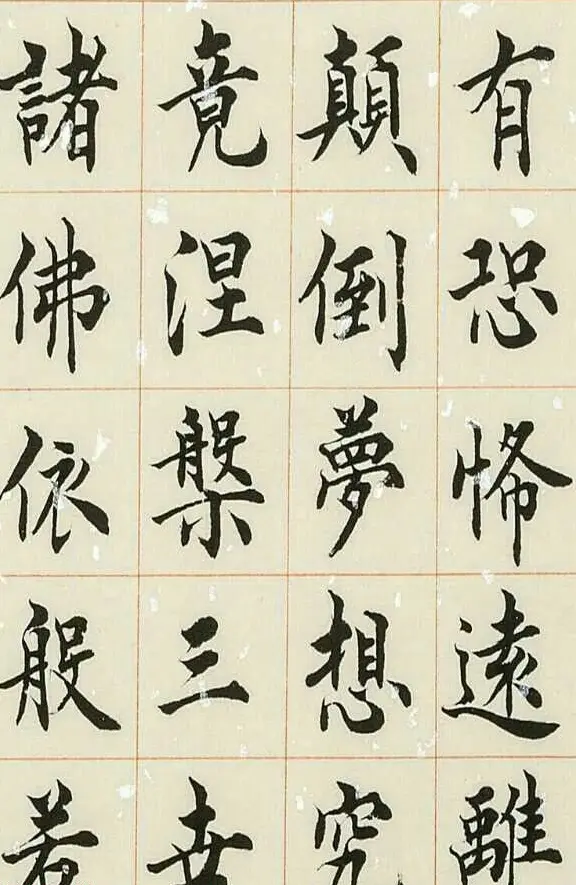 有恐悕遠離
顛倒夢想究
竟涅槃三世
諸佛依般若